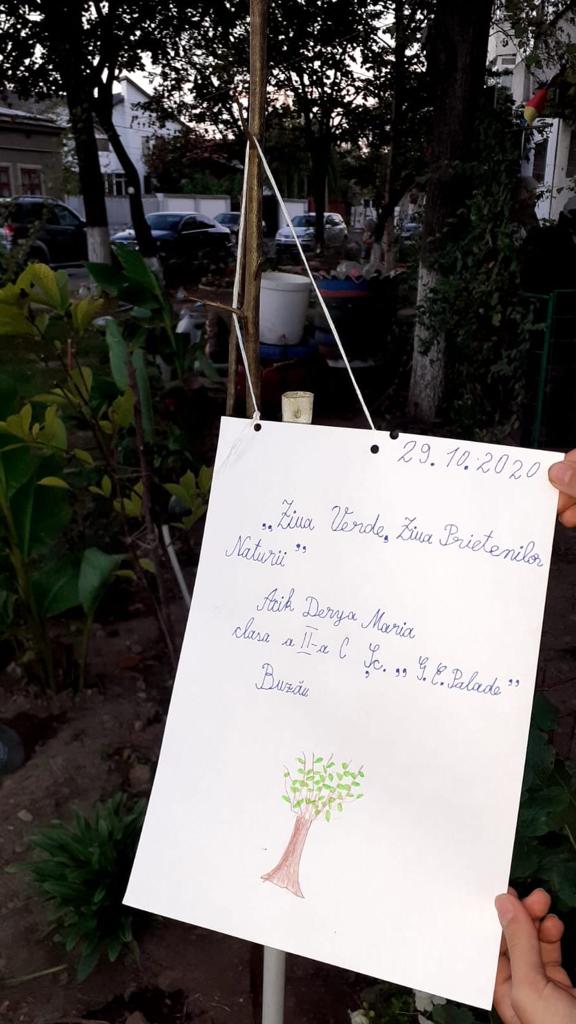 29.10.2020
„Ziua Verde, Ziua Prietenilor
Naturii”
Acik Derya Maria
clasa a II-a C Șc. „G.E.Palade”
Buzău